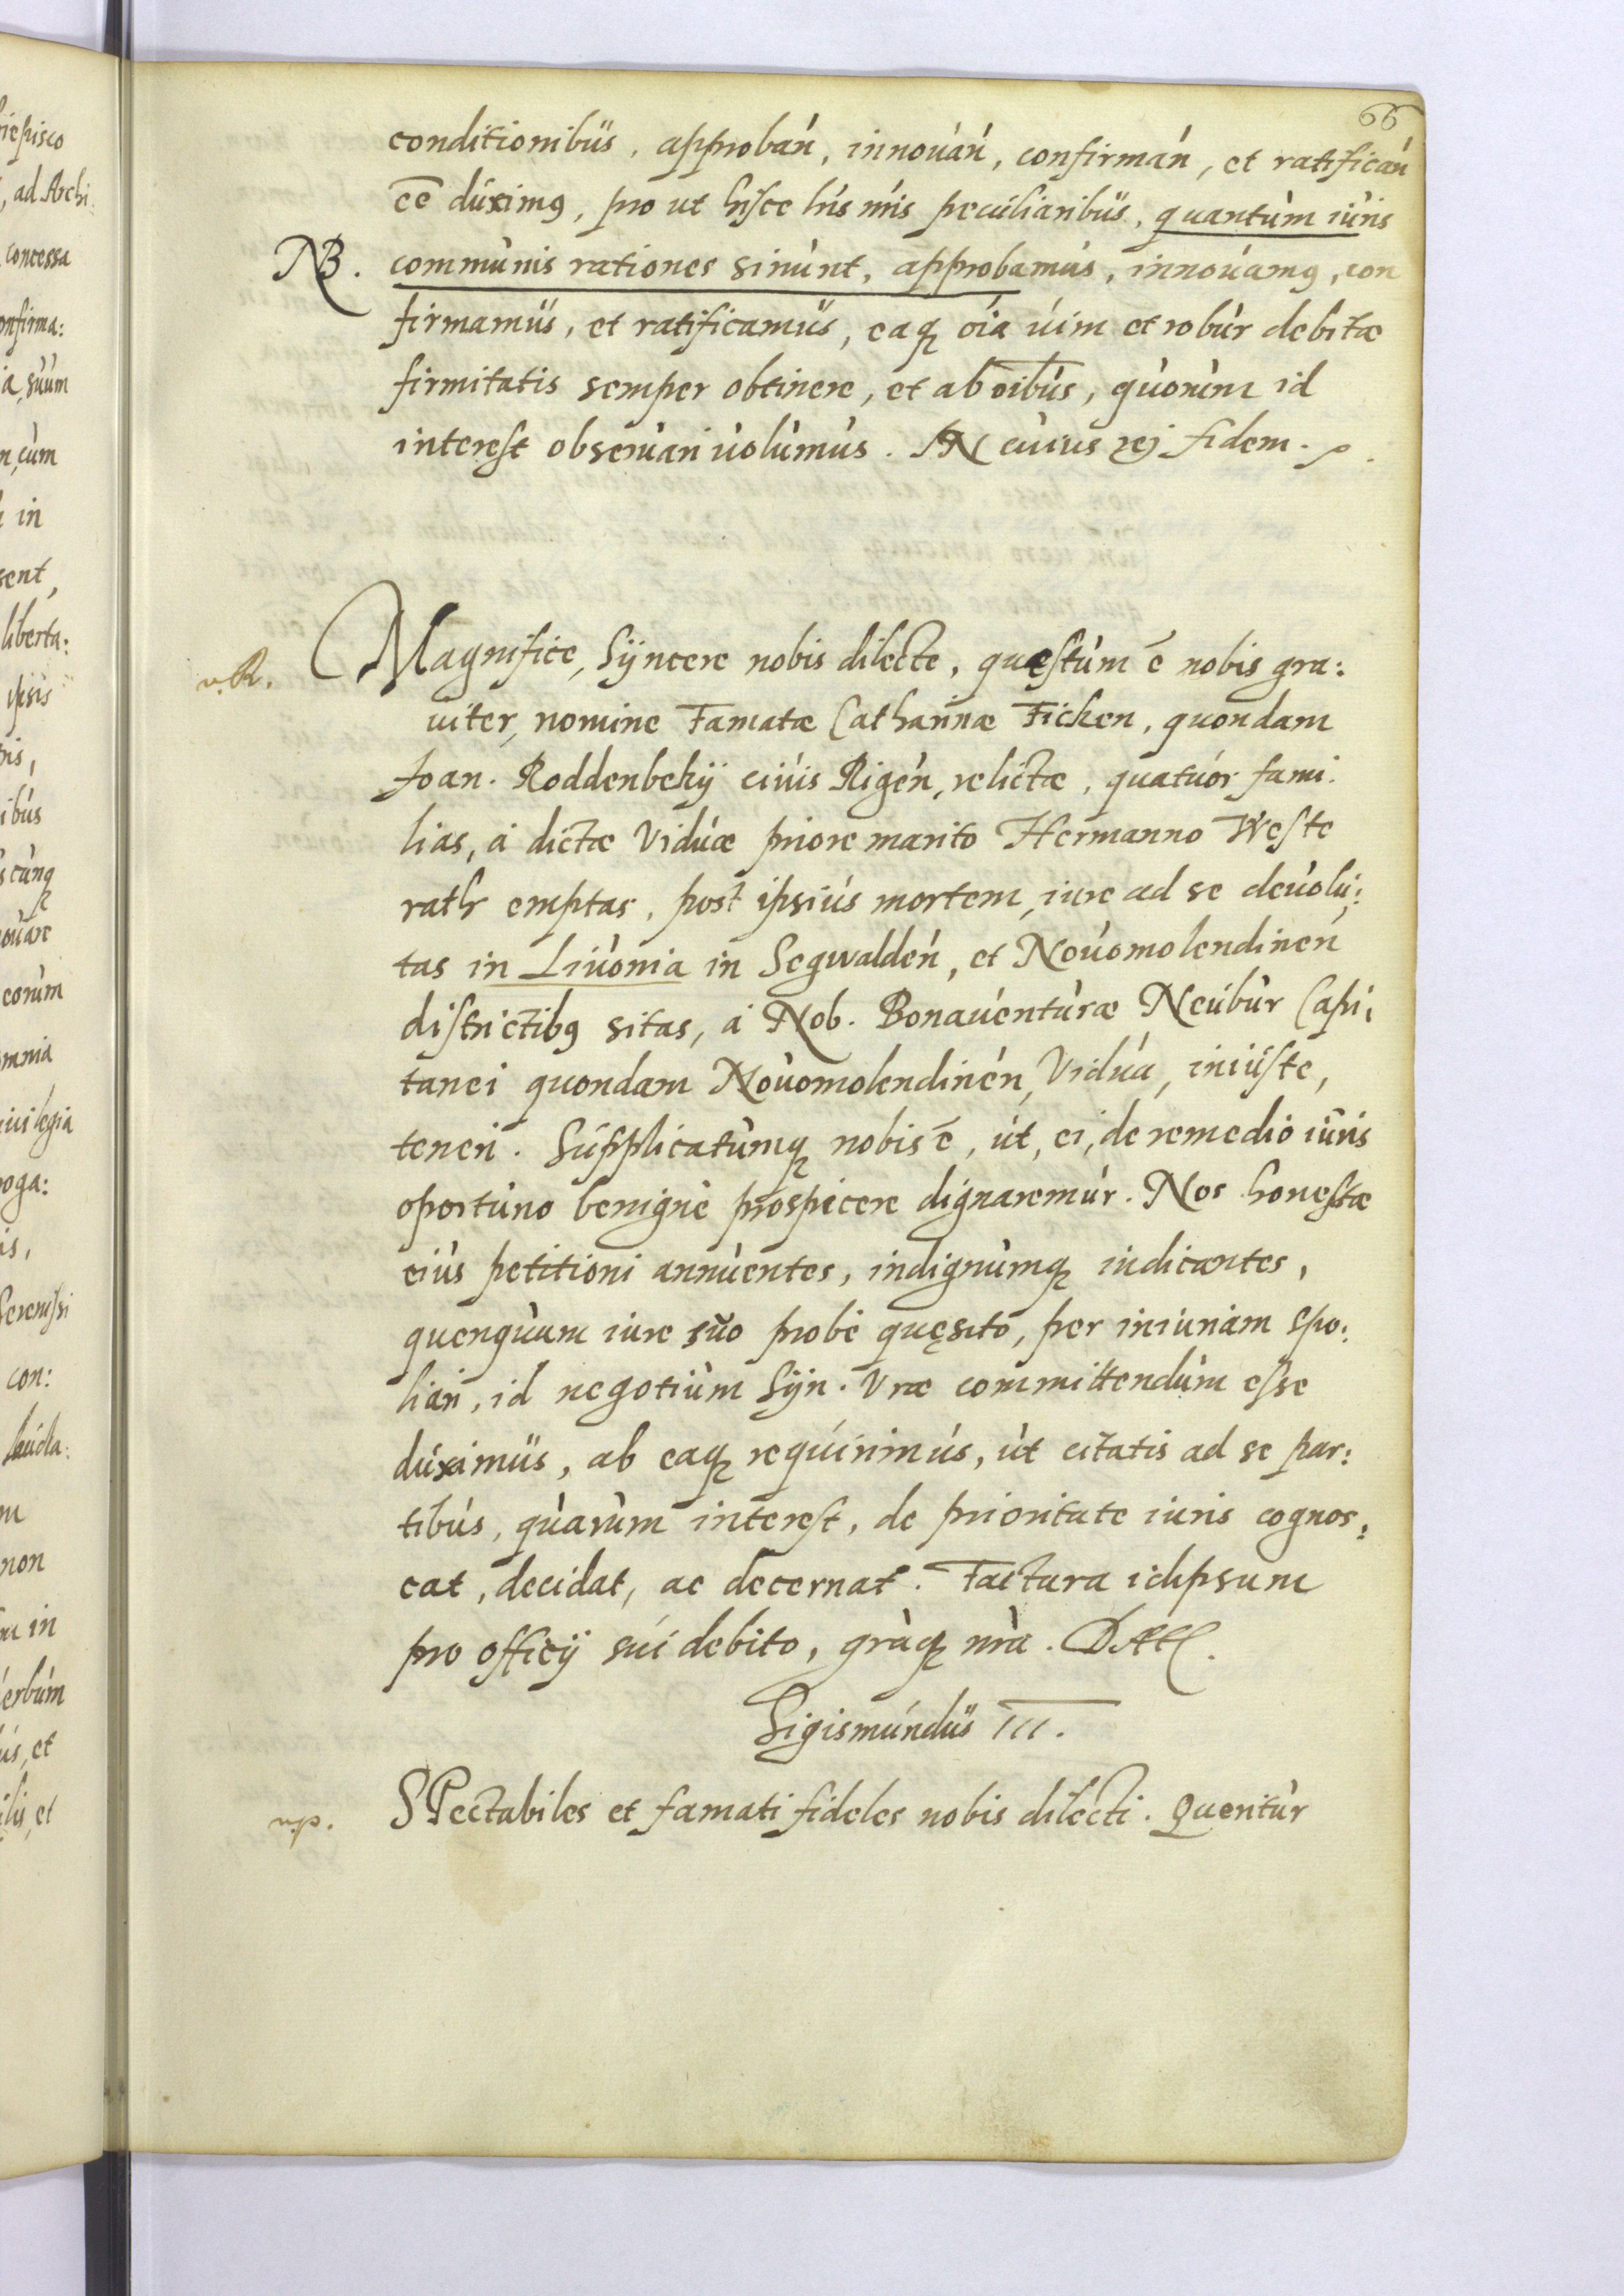 66
conditionibus, approbań, innouań, confirmań, et ratificań
eē duximꝰ, pro ut hisce lrīs nrīs peculiaribus, quantum iuris
NB. communis rationes sinunt, approbamus, innouamꝰ, con
firmamus, et ratificamus, eaqꝫ oīa uim et robur debitæ
firmitatis semper obtinere, et ab oībus, quorum id
interest obseruari uolumus. IN cuius rej fidem.
Magnifice, Syncere nobis dilecte, quæstum ē nobis gra:
v.R.
uiter, nomine Famatæ Catharinæ Ficken, quondam
Joan. Roddenbekij ciuis Rigeń, relictæ, quatuor fami.
lias, a dictæ Viduæ priore marito Hermanno Weste
rath emptas, post ipsius mortem, iure ad se deuolu:
tas in Liuonia in Segwaldeń, et Nouomolendineń
districtibꝰ sitas, a Nob. Bonauenturæ Neubur Capi:
tanei quondam Nouomolendineń, Vidua, iniuste,
teneri. Supplicatumqꝫ nobis ē, ut, ei, de remedio iuris
oportuno benigne prospicere dignaremur. Nos honestæ
eius petitioni annuentes, indignumqꝫ iudicantes,
quenquam iure suo probe quęsito, per iniuriam spo:
liari, id negotium Syn. Vræ committendum esse
duximus, ab eaqꝫ requirimus, ut citatis ad se par:
tibus, quarum interest, de prioritate iuris cognos:
cat, decidat, ac decernat. Factura idipsum
pro officij sui debito, grāqꝫ nrā. Datt.
Sigismundus III.
SPectabiles et famati fideles nobis dilecti. Queritur